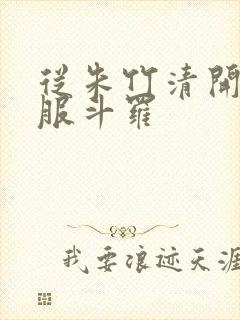 從朱竹清開
服斗羅
我要浪迹天涯